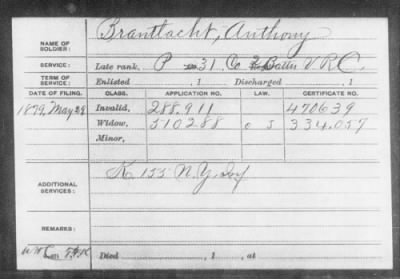 NAME OF SOLDIER: Brantlacht, Anthony
SERVICE: Late rank, P 31 Co 2 Battn V.R.C.
TERM OF SERVICE: Enlisted , 1 Discharged , 1
DATE OF FILING. CLASS. APPLICATION NO. LAW. CERTIFICATE NO.
1879, May 28 Invalid, 288.911 470639
Widow, 510288 334.057
Minor,
ADDITIONAL SERVICES: K. 155 N.Y. Inf
REMARKS:
Died , 1 , at